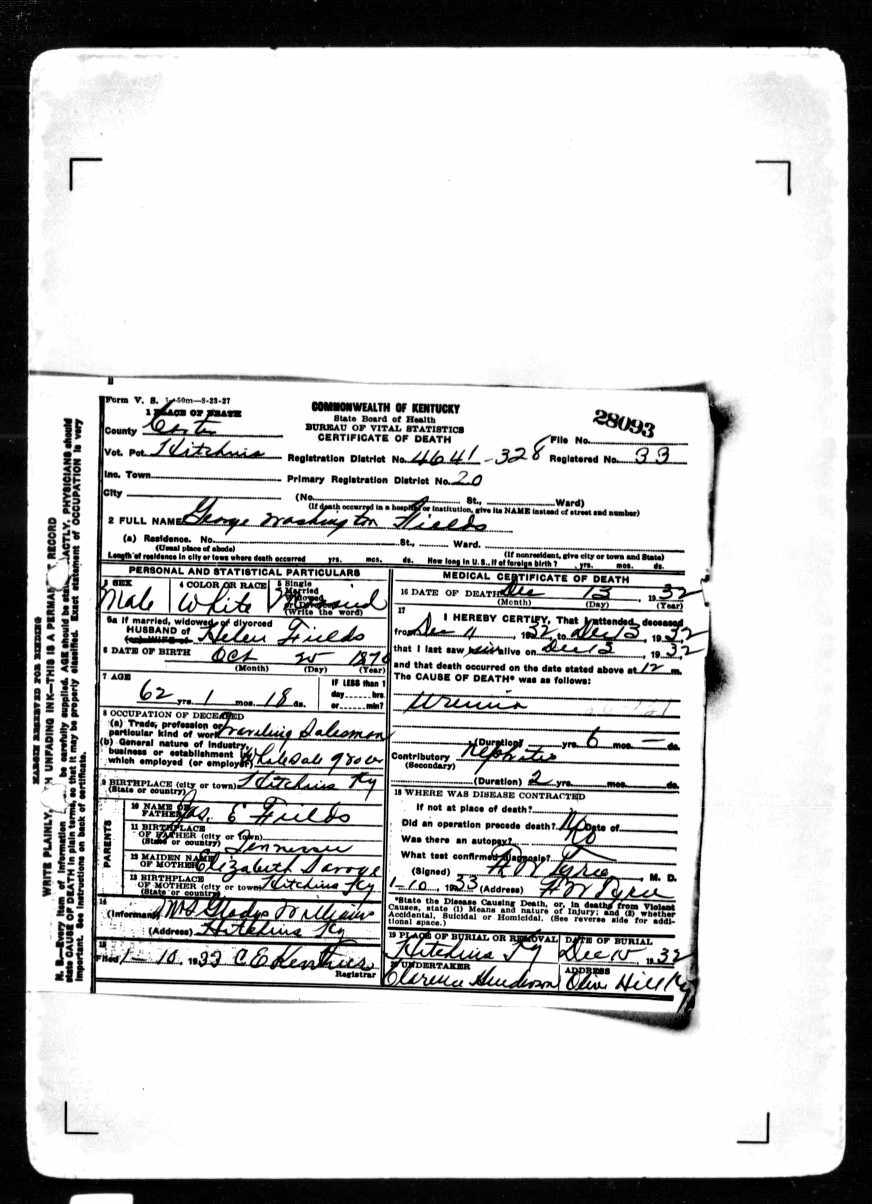 Form V. S. 1-50m-8-23-27
COMMONWEALTH OF KENTUCKY
State Board of Health
BUREAU OF VITAL STATISTICS
CERTIFICATE OF DEATH
28093
1 PLACE OF DEATH
County Carter
Vot. Pct. Hitchins
Registration District No. 4641-328
File No.
Registered No. 33
Inc. Town
Primary Registration District No. 20
City
(No. St., Ward)
(If death occurred in a hospital or institution, give its NAME instead of street and number)
2 FULL NAME George Washington Fields
(a) Residence. No. St., Ward.
(Usual place of abode)
(If nonresident, give city or town and State)
Length of residence in city or town where death occurred yrs. mos. ds. How long in U. S., if of foreign birth? yrs. mos. ds.
PERSONAL AND STATISTICAL PARTICULARS
3 SEX
Male
4 COLOR OR RACE
White
5 Single
Married
Widowed
or Divorced
(Write the word)
5a If married, widowed or divorced
HUSBAND of Helen Fields
(or) WIFE of
6 DATE OF BIRTH Oct 25 1870
(Month) (Day) (Year)
7 AGE
62 yrs. 1 mos. 18 ds.
IF LESS than 1
day hrs.
or min?
8 OCCUPATION OF DECEASED
(a) Trade, profession or
particular kind of work Traveling Salesman
(b) General nature of industry,
business or establishment in
which employed (or employer) Wholesale grocer
9 BIRTHPLACE (city or town) Hitchins Ky
(State or country)
PARENTS
10 NAME OF
FATHER Jas. E Fields
11 BIRTHPLACE
OF FATHER (city or town)
(State or country) Tennessee
12 MAIDEN NAME
OF MOTHER Elizabeth Savage
13 BIRTHPLACE
OF MOTHER (city or town) Hitchins Ky
(State or country)
14
(Informant) Mrs Gladys Williams
(Address) Hitchins Ky
15
Filed 1-10, 1933 C E
Registrar
MEDICAL CERTIFICATE OF DEATH
16 DATE OF DEATH Dec 13, 1932
(Month) (Day) (Year)
17
I HEREBY CERTIFY, That I attended deceased
from Dec 11, 1932, to Dec 13, 1932
that I last saw him alive on Dec 13, 1932
and that death occurred on the date stated above at 12 m.
The CAUSE OF DEATH* was as follows:
Uremia
(Duration) yrs. 6 mos. — ds.
Contributory Nephritis
(Secondary)
(Duration) 2 yrs. mos. ds.
18 WHERE WAS DISEASE CONTRACTED
If not at place of death?
Did an operation precede death? No Date of
Was there an autopsy?
What test confirmed diagnosis?
(Signed) M. D.
1-10, 1933 (Address)
*State the Disease Causing Death, or, in deaths from Violent
Causes, state (1) Means and nature of Injury; and (2) whether
Accidental, Suicidal or Homicidal. (See reverse side for addi-
tional space.)
19 PLACE OF BURIAL OR REMOVAL
Hitchins Ky
DATE OF BURIAL
Dec 15, 1932
20 UNDERTAKER
Clarence Henderson
ADDRESS
Olive Hill Ky
MARGIN RESERVED FOR BINDING
WRITE PLAINLY, WITH UNFADING INK—THIS IS A PERMANENT RECORD
N. B.—Every item of information should be carefully supplied. AGE should be stated EXACTLY. PHYSICIANS should
state CAUSE OF DEATH in plain terms, so that it may be properly classified. Exact statement of OCCUPATION is very
important. See instructions on back of certificate.